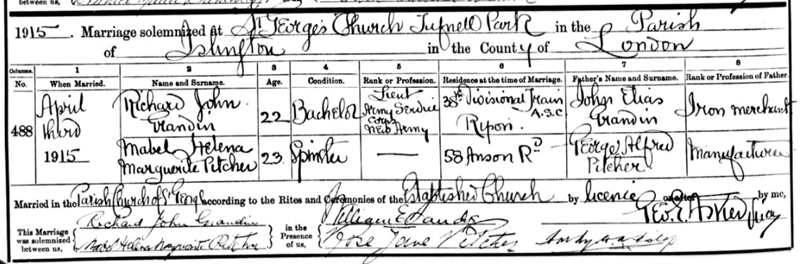 1915. Marriage solemnized at St George's Church Tufnell Park in the Parish
of Islington in the County of London
Columns. 1 2 3 4 5 6 7 8
No. When Married. Name and Surname. Age. Condition. Rank or Profession. Residence at the time of Marriage. Father's Name and Surname. Rank or Profession of Father.
488 April third 1915 Richard John Grandin 22 Bachelor Lieut Army Service Corps New Army 38th Divisional Train A.S.C Ripon. John Elias Grandin Iron merchant
Mabel Helena Marguerite Pitcher 23 Spinster — 58 Anson Rd George Alfred Pitcher Manufacturer
Married in the Parish Church of St George according to the Rites and Ceremonies of the Established Church by licence or after by me,
This Marriage was solemnized between us, Richard John Grandin
Mabel Helena Marguerite Pitcher
in the Presence of us,
Rose Jane Pitcher